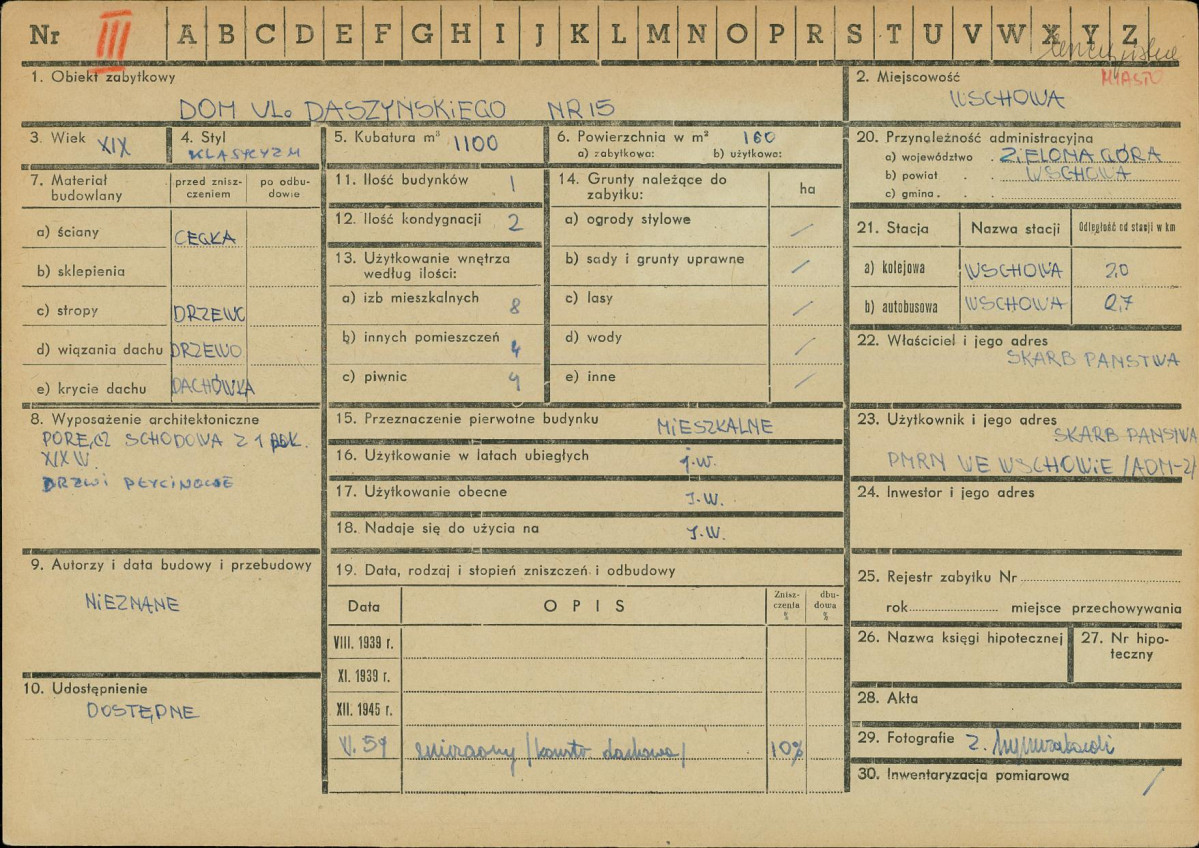 Nr III A B C D E F G H I J K L M N O P R S T U V W X Y Z
1. Obiekt zabytkowy
DOM UL. DASZYŃSKIEGO NR 15
2. Miejscowość MIASTO
WSCHOWA
3. Wiek XIX
4. Styl
KLASYCYZM
5. Kubatura m³ 1100
6. Powierzchnia w m² 160
a) zabytkowa: b) użytkowa:
7. Materiał budowlany
przed znisz-
czeniem
po odbu-
dowie
a) ściany CEGŁA
b) sklepienia
c) stropy DRZEWO
d) wiązania dachu DRZEWO
e) krycie dachu DACHÓWKA
8. Wyposażenie architektoniczne
PORĘCZ SCHODOWA Z 1 POŁ.
XIX W.
DRZWI PŁYCINOWE
9. Autorzy i data budowy i przebudowy
NIEZNANE
10. Udostępnienie
DOSTĘPNE
11. Ilość budynków 1
12. Ilość kondygnacji 2
13. Użytkowanie wnętrza
według ilości:
a) izb mieszkalnych 8
b) innych pomieszczeń 4
c) piwnic 4
14. Grunty należące do
zabytku:
ha
a) ogrody stylowe /
b) sady i grunty uprawne /
c) lasy /
d) wody /
e) inne /
15. Przeznaczenie pierwotne budynku MIESZKALNE
16. Użytkowanie w latach ubiegłych j.w.
17. Użytkowanie obecne J.W.
18. Nadaje się do użycia na J.W.
19. Data, rodzaj i stopień zniszczeń i odbudowy
Data OPIS
Znisz-
czenia
%
dbu-
dowa
%
VIII. 1939 r.
XI. 1939 r.
XII. 1945 r.
V. 59 /dachowa/ 10%
20. Przynależność administracyjna
a) województwo . ZIELONA GÓRA
b) powiat . . WSCHOWA
c) gmina . .
21. Stacja Nazwa stacji Odległość od stacji w km
a) kolejowa WSCHOWA 2,0
b) autobusowa WSCHOWA 0,7
22. Właściciel i jego adres
SKARB PAŃSTWA
23. Użytkownik i jego adres
SKARB PAŃSTWA
PMRN WE WSCHOWIE /ADM-2/
24. Inwestor i jego adres
25. Rejestr zabytku Nr
rok miejsce przechowywania
26. Nazwa księgi hipotecznej
27. Nr hipo-
teczny
28. Akta
29. Fotografie Z.
30. Inwentaryzacja pomiarowa /